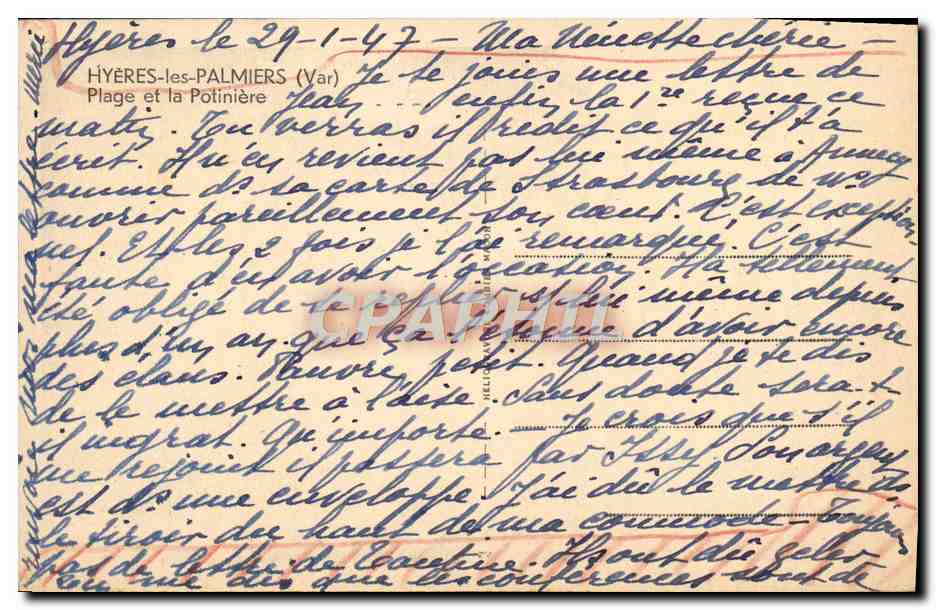 Hyères le 29-1-47 - Ma Nénette chérie -
HYÈRES-les-PALMIERS (Var)
Plage et la Potinière
Je te joins une lettre de
Jean ... enfin la 1re reçue ce
matin. Tu verras il redit ce qu'il t'a
écrit. Il n'en revient pas lui même à Annecy
comme ds sa carte de Strasbourg de ns
ouvrir pareillement son cœur. C'est exception-
nel. Et les 2 fois je l'ai remarqué. C'est
faute d'en avoir l'occasion. Il a tellement
été obligé de se replier sur lui même depuis
plus d'un an que ça l'étonne d'avoir encore
des élans. Pauvre petit. Quand je te dis
de le mettre à l'aise. Sans doute sera-t-
il ingrat. Qu'importe. - Je crois que s'il
me rejoint il passera par Issy. Son argent
est ds une enveloppe. J'ai dû le mettre ds
le tiroir du haut de ma commode - Toujours
pas de lettre de Tantine. Ils ont dû geler
On me dis que les conférences sont de
CPAPHIL